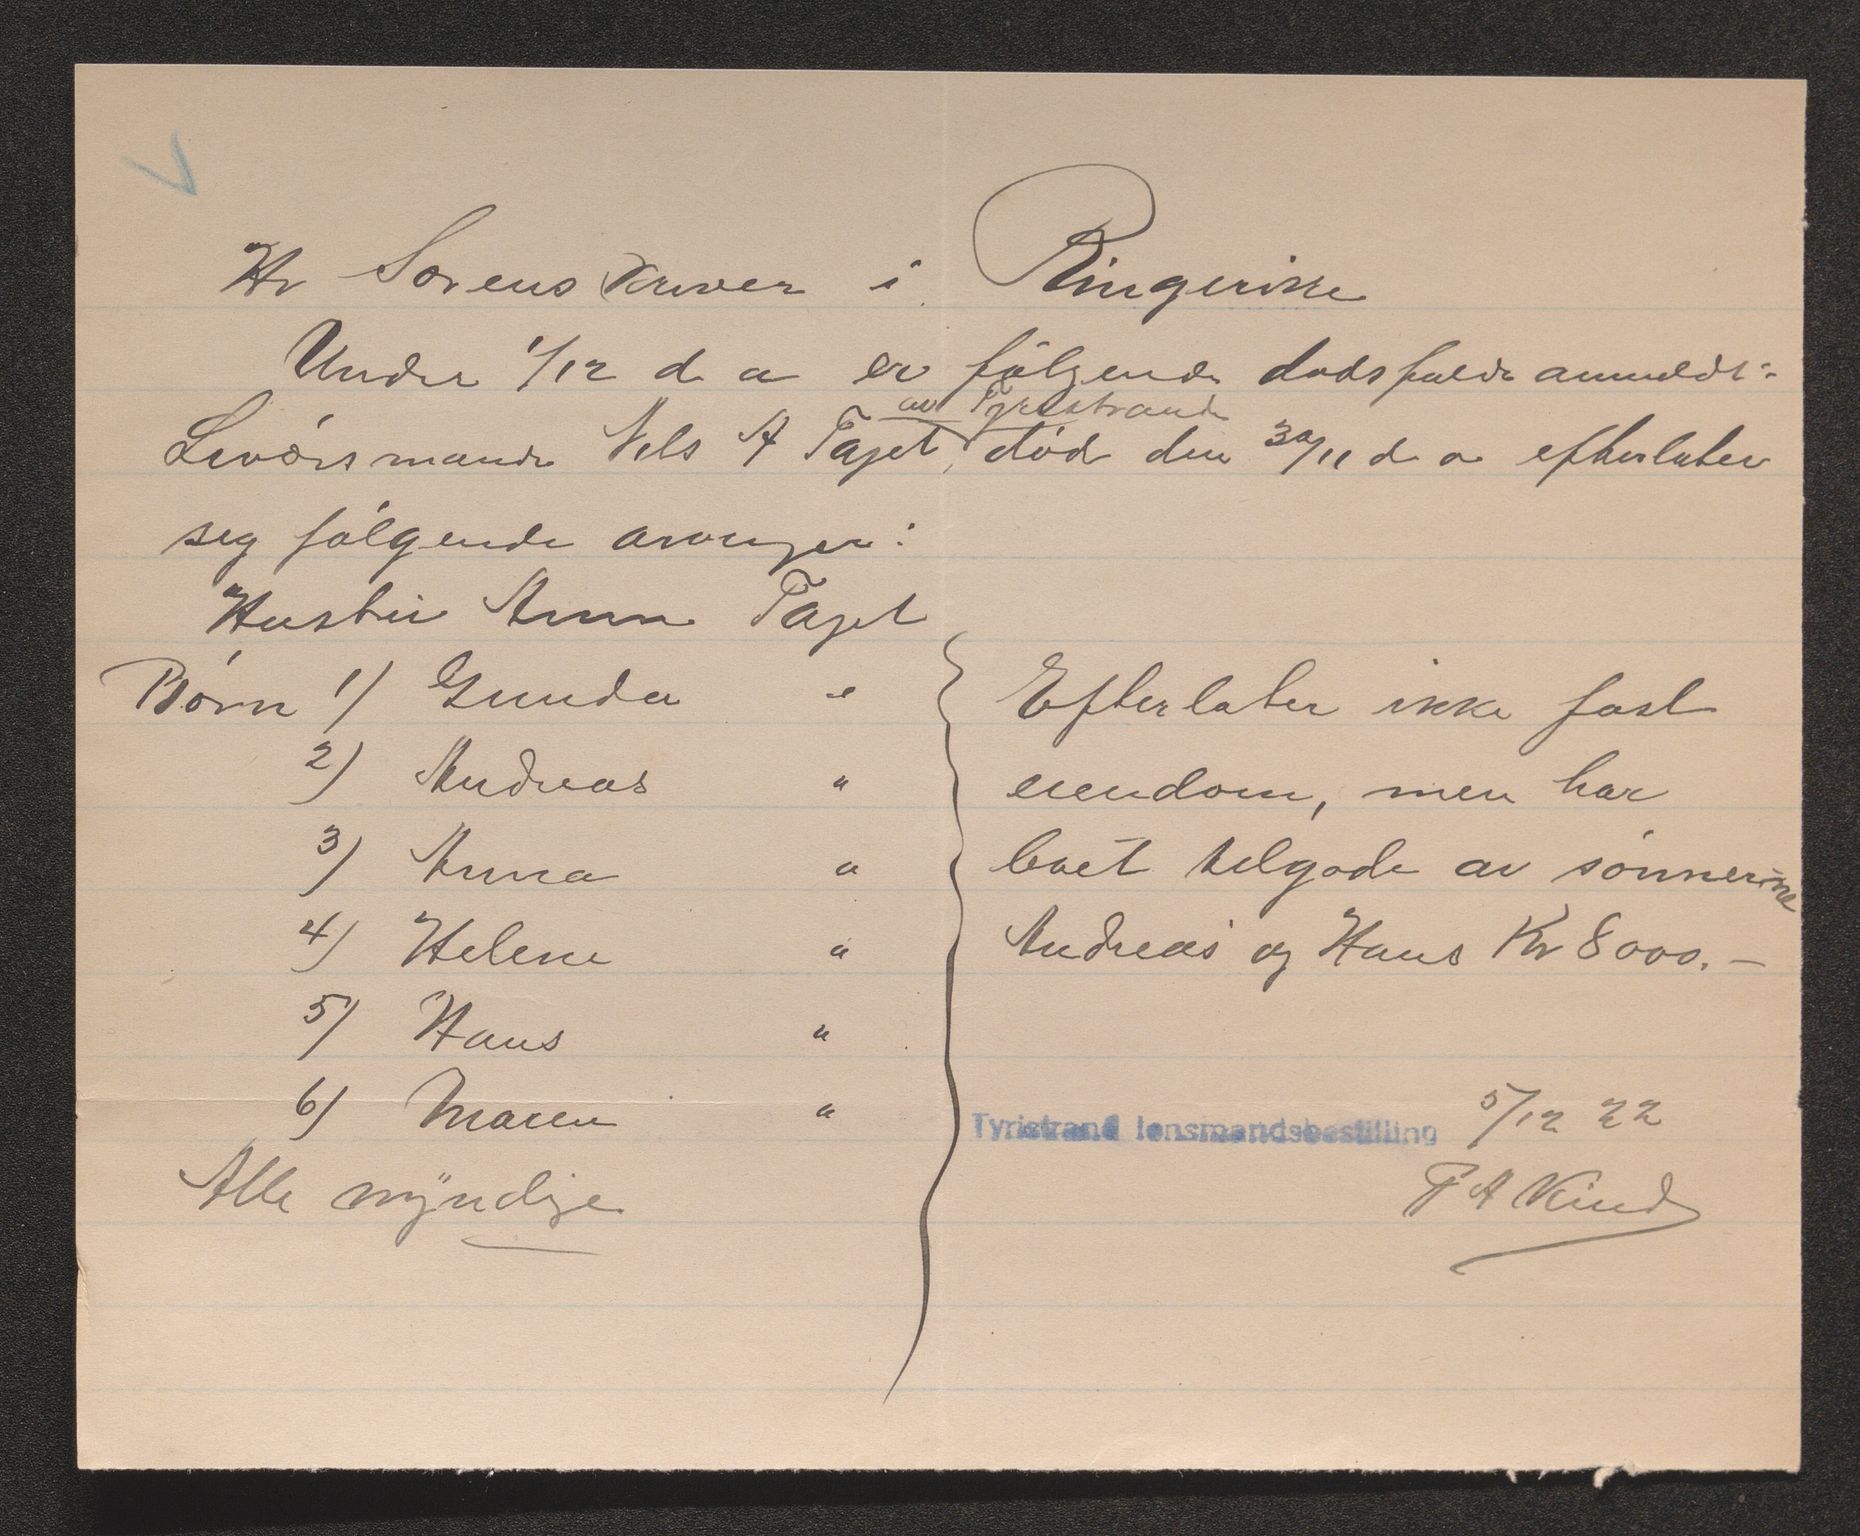 Hr Sorenskriver i Ringerike
Under 1/12 d a er følgende dødsfalde anmeldt:
av Tyristrand
Livörsmand Nels A Taget, død den 30/11 d a efterlater
seg følgende arvinger:
Hustru Anna Taget
Børn 1) Gunda "
2) Andreas "
3) Anna "
4) Helene "
5) Hans "
6) Maren "
Alle myndige
Efterlater ikke fast
eiendom, men har
boet tilgode av sønnerne
Andreas og Hans Kr 8000.-
Tyristrand lensmandsbestilling 5/12 22
P A Kind